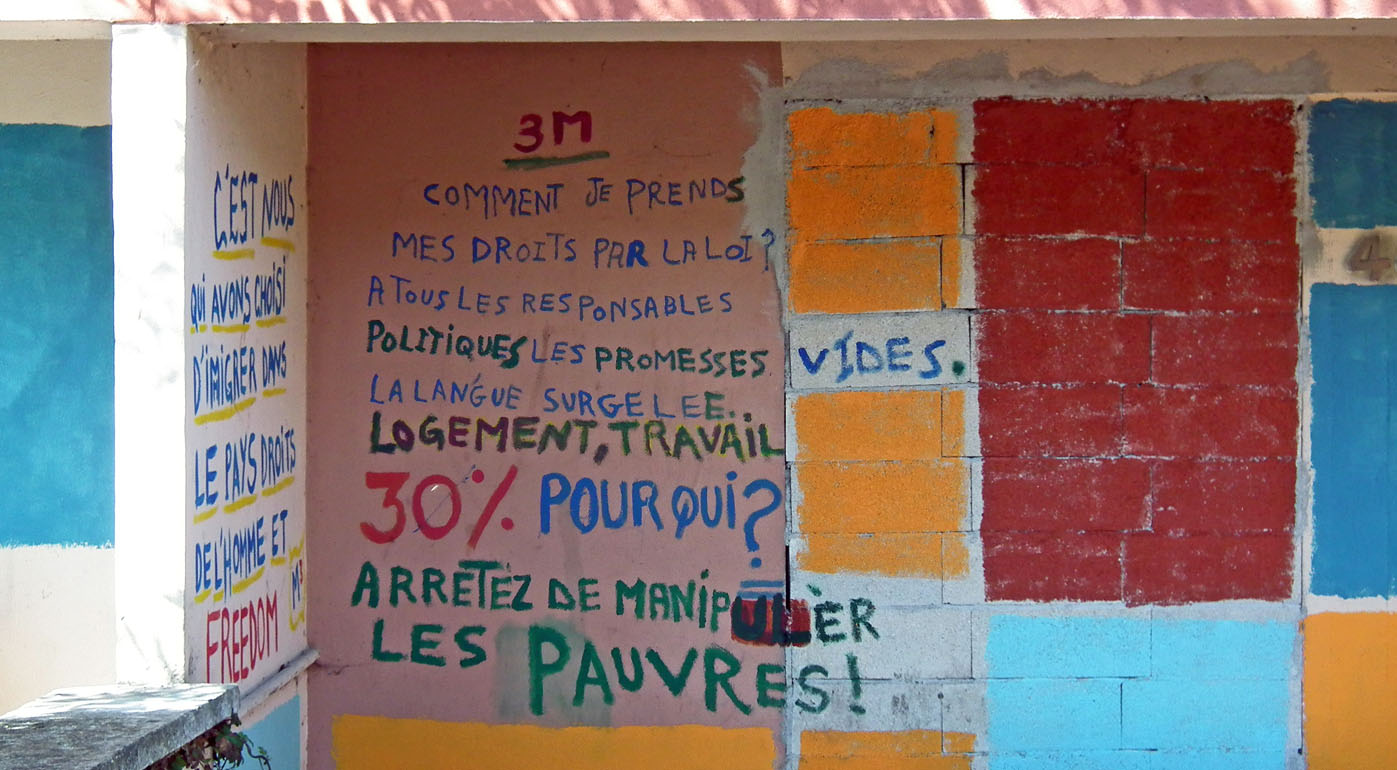 C'EST NOUS
QUI AVONS CHOISI
D'IMIGRER DANS
LE PAYS DROITS
DE L'HOMME ET
M³
FREEDOM
3M
COMMENT JE PRENDS
MES DROITS PAR LA LOI ?
A TOUS LES RESPONSABLES
POLITIQUES LES PROMESSES VIDES.
LA LANGUE SURGELEE.
LOGEMENT, TRAVAIL
30% POUR QUI ?
ARRÊTEZ DE MANIPULER
LES PAUVRES !
4